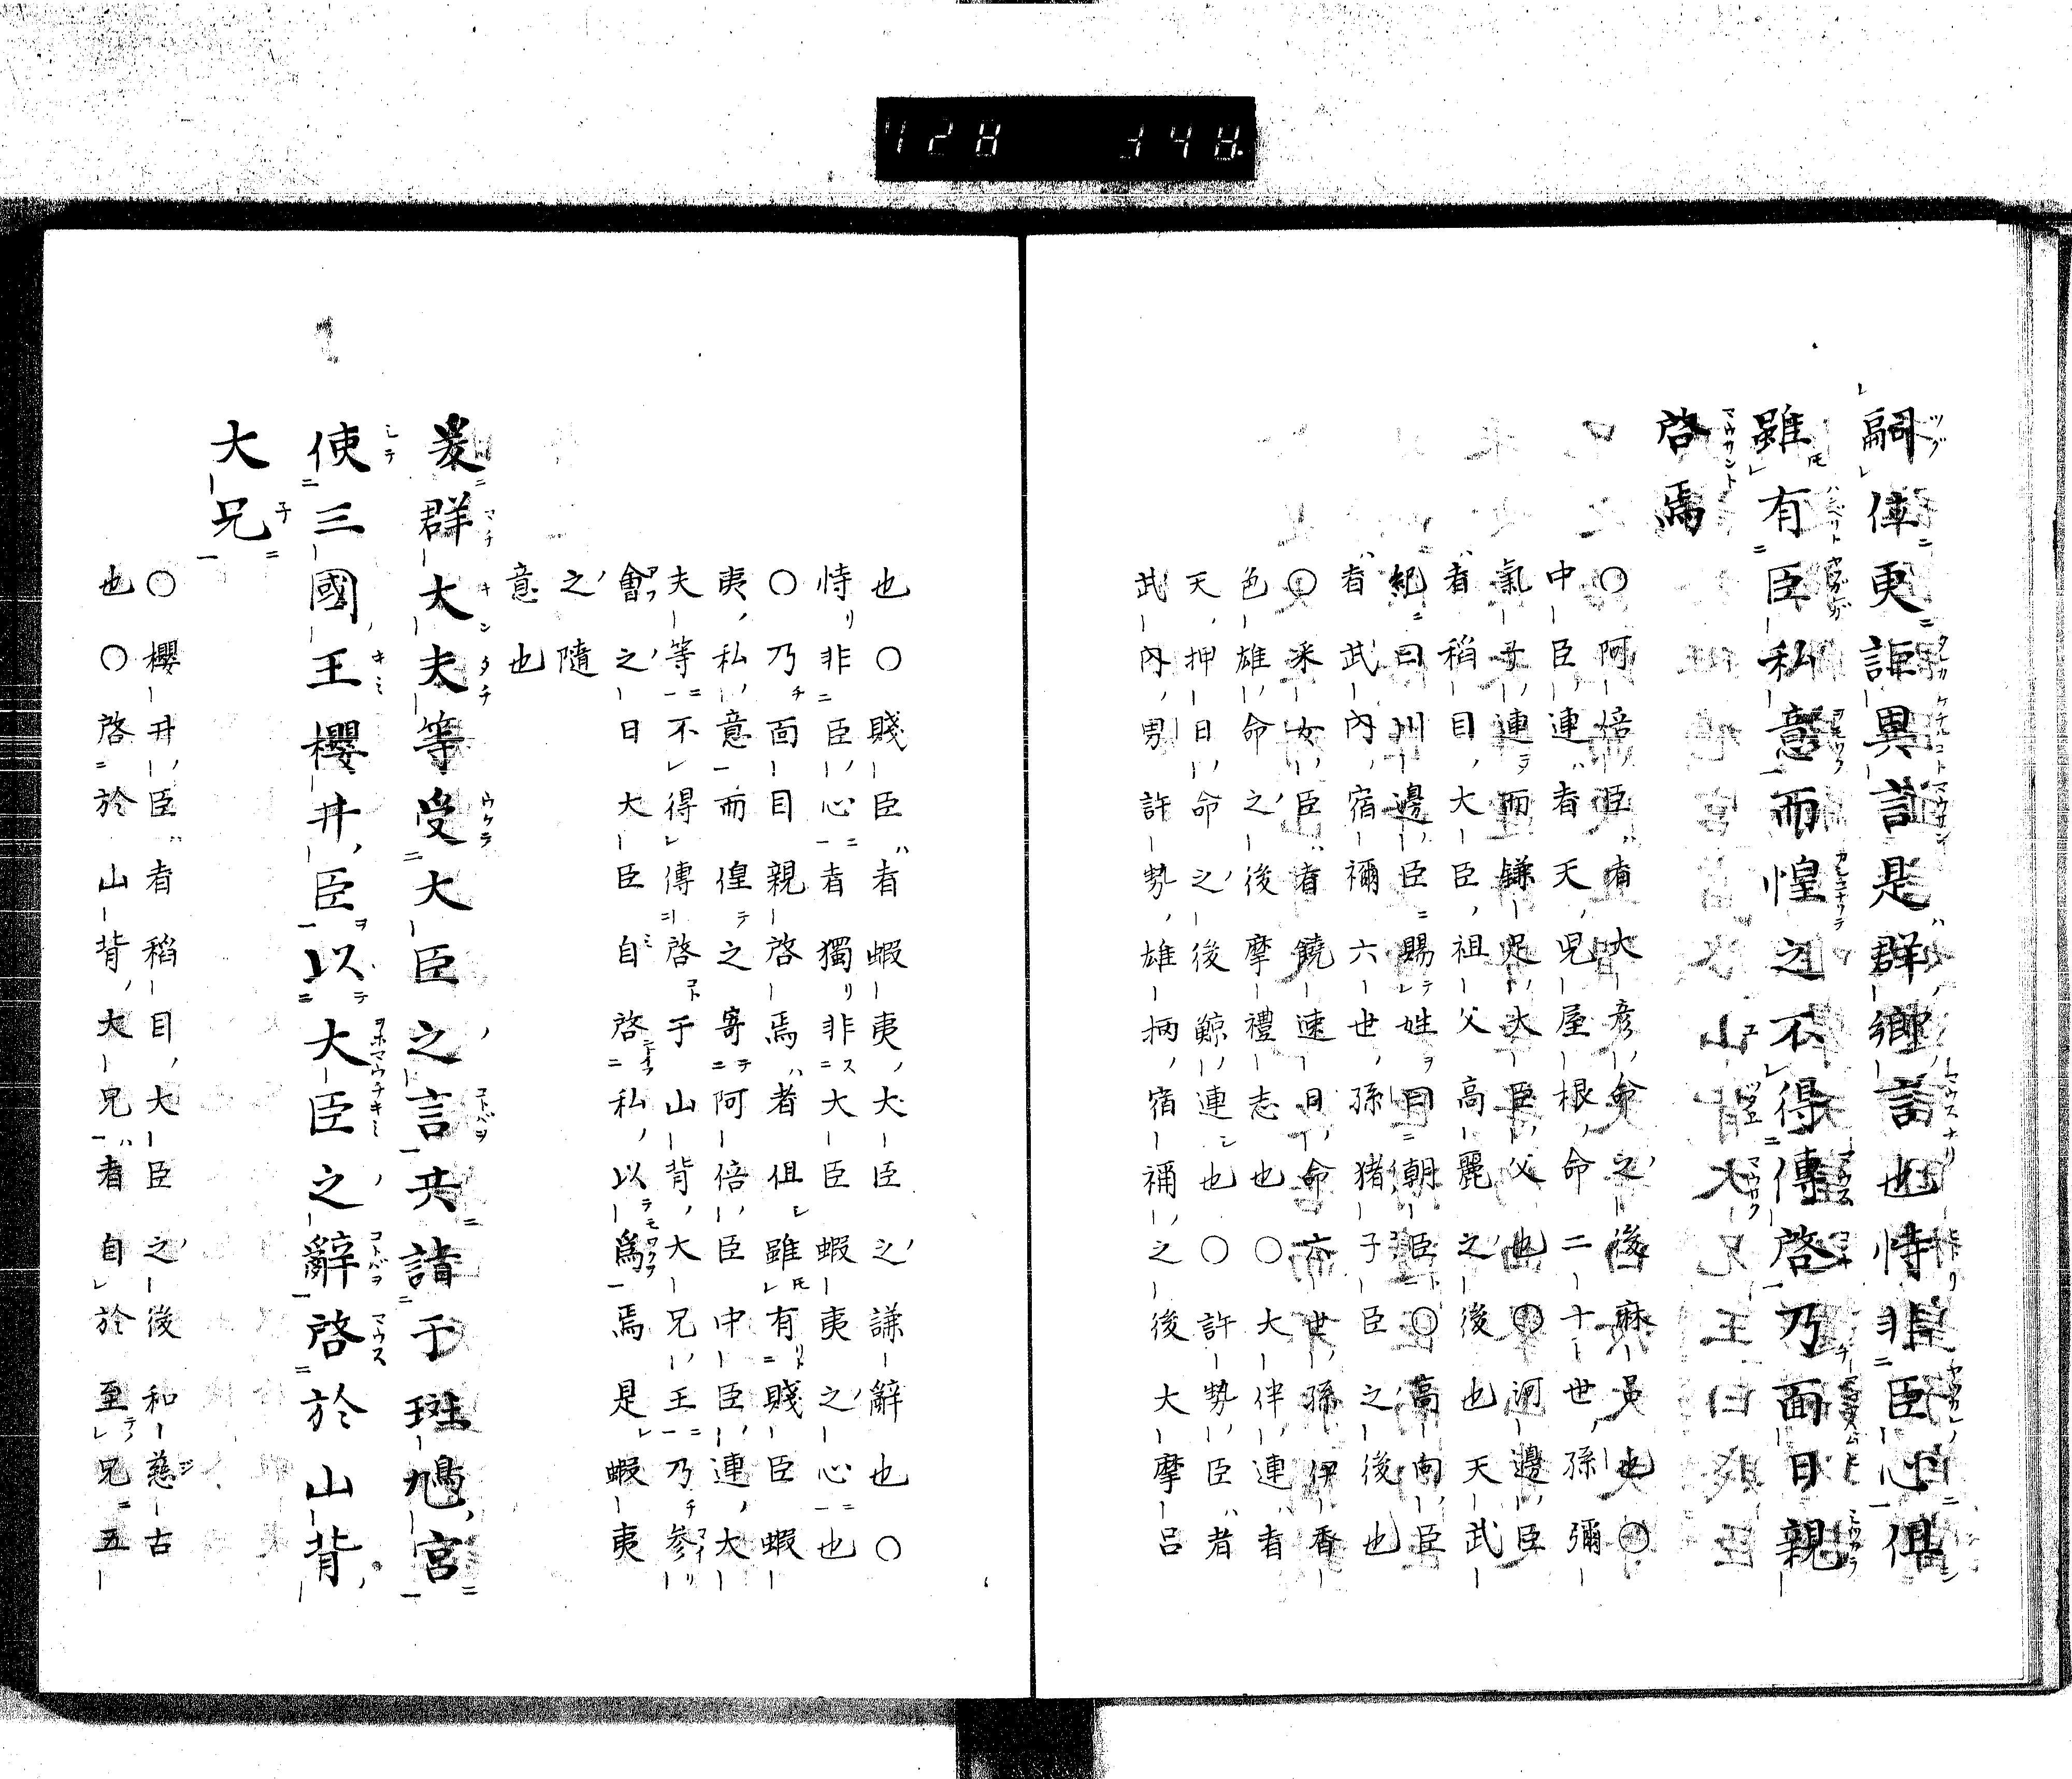 嗣位更詎異言是群卿言也特非臣心但
雖有臣私意而惶之不得傳啓乃面日親
啓焉
○阿倍臣者大彦命之後麻呂也○
中臣連者天兒屋根命二十世孫彌
氣子連而鎌足大臣父也○河邊臣
者稻目大臣祖父高麗之後也天武
紀曰川邊臣賜姓曰朝臣○高向臣
者武內宿禰六世孫猪子臣之後也
○釆女臣者饒速日命六世孫伊香
色雄命之後摩禮志也○大伴連者
天押日命之後鯨連也○許勢臣者
武內男許勢雄柄宿禰之後大摩呂
也○賤臣者蝦夷大臣之謙辭也○
恃非臣心者獨非大臣蝦夷之心也
○乃面目親啓焉者但雖有賤臣蝦
夷私意而惶之寄阿倍臣中臣連大
夫等不得傳啓于山背大兄王乃參
會之日大臣自啓私以爲焉是蝦夷
之隨
意也
爰群大夫等受大臣之言共詣于斑鳩宮
使三國王櫻井臣以大臣之辭啓於山背
大兄
○櫻井臣者稻目大臣之後和慈古
也○啓於山背大兄者自於至兄五
728 348